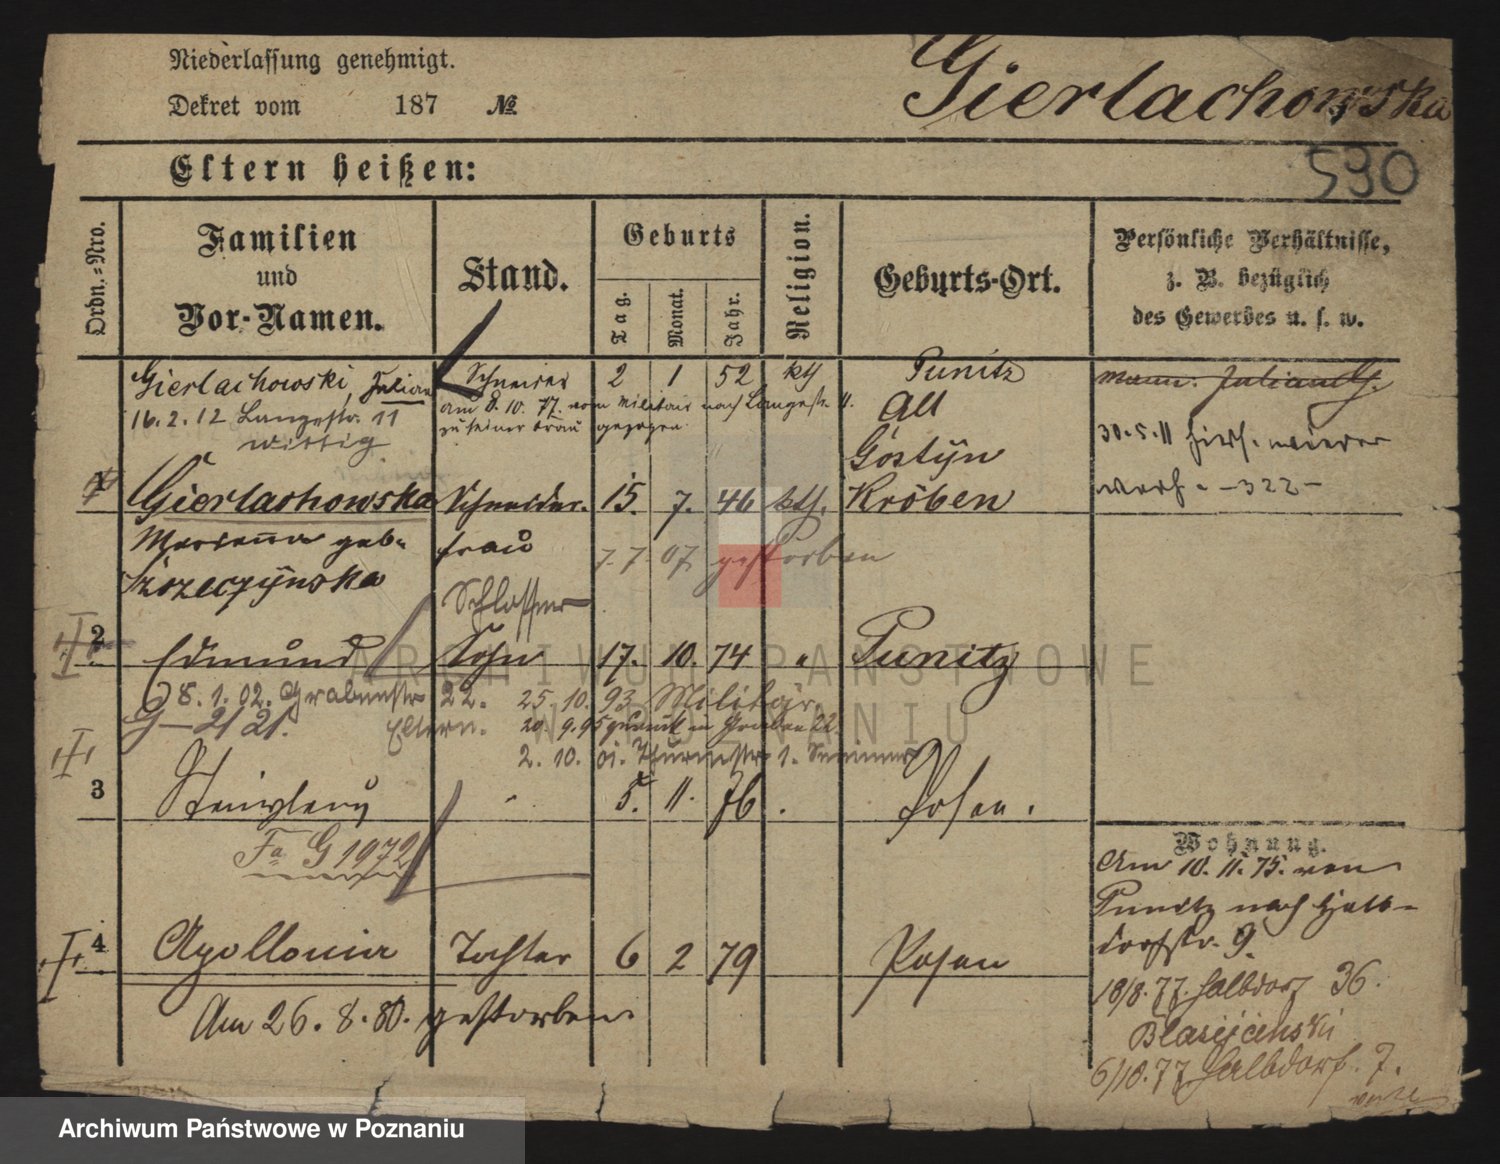 Niederlassung genehmigt.
Dekret vom 187 №
Gierlachowska
590
Eltern heißen:
Ordn.-Nro.
Familien und Vor-Namen.
Stand.
Geburts
Tag.
Monat.
Jahr.
Religion.
Geburts-Ort.
Persönliche Verhältnisse,
z. B. bezüglich
des Gewerbes u. s. w.
Gierlachowski, Julian Schneider 2 1 52 kth Punitz
Mann: Julian G.
am 8. 10. 77. vom Militair nach Langestr. 11.
16. 2. 12 Langestr. 11 zu seiner Frau gezogen. All
wittig
30. 5. 11 hies. wieder
Göstÿn
1 Gierlachowska Schneider- 15. 7. 46 kth. Kröben
- 322 -
Marianna geb. frau 7. 7. 07 gestorben
Szczeczÿnska
Schlosser
2 Edmund Sohn 17. 10. 74 " Punitz
8. 1. 02. Grabenstr 22. 25. 10. 93 Militär
G - 21 21. Eltern. 20. 9. 95 zurück in Graben 22.
2. 10. 01. Thurmstr. 1.
3 5. 11. 76 Posen.
Fa G 1972
4 Apollonia Tochter 6 2 79 Posen
Am 26. 8. 80. gestorben.
Wohnung.
Am 10. 11. 75. von
Punitz nach Halb-
dorfstr. 9.
18/8. 77 Halbdorf 36.
6/10. 77 Halbdorf. 7.
ARCHIWUM PAŃSTWOWE
W POZNANIU
Archiwum Państwowe w Poznaniu